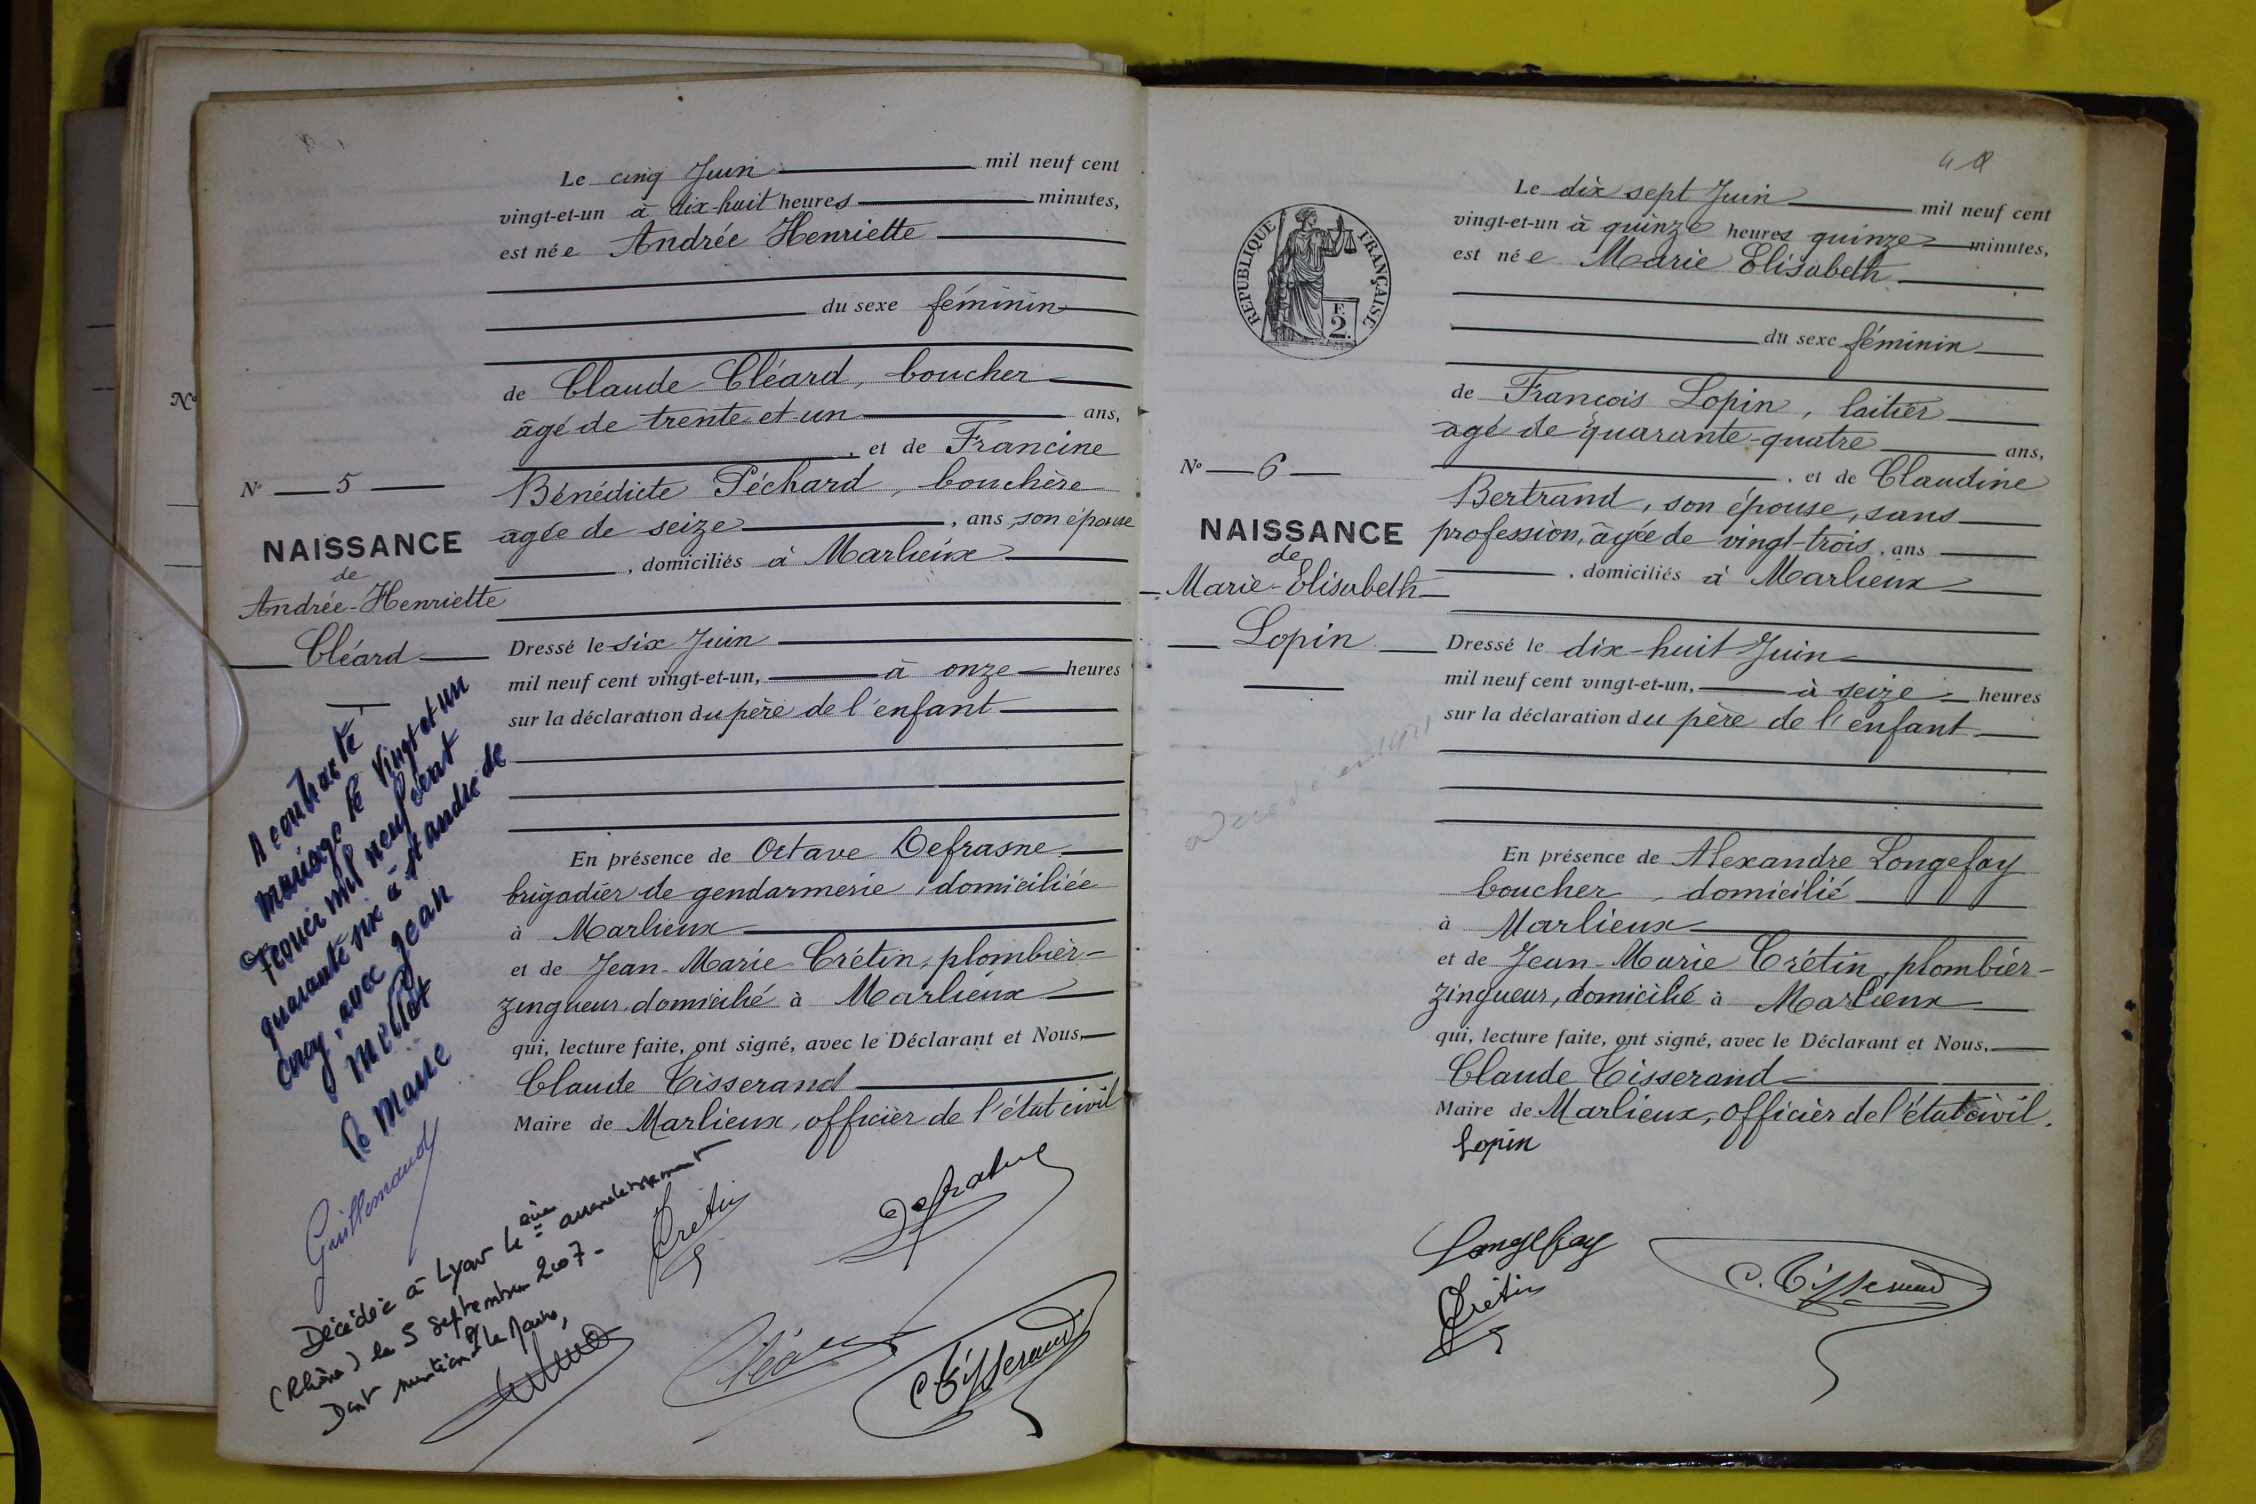 Le cinq Juin mil neuf cent
vingt-et-un à dix-huit heures minutes,
est née Andrée Henriette
du sexe féminin
de Claude Cléard, boucher
âgé de trente-et-un ans,
, et de Francine
Bénédicte Péchard, bouchère
âgée de seize , ans, son épouse
, domiciliés à Marlieux
Dressé le six Juin
mil neuf cent vingt-et-un, à onze heures
sur la déclaration du père de l'enfant
En présence de Octave Defrasne
brigadier de gendarmerie, domiciliée
à Marlieux
et de Jean-Marie Crétin, plombier-
zingueur, domicilié à Marlieux
qui, lecture faite, ont signé, avec le Déclarant et Nous,
Claude Tisserand
Maire de Marlieux, officier de l'état civil
No 5
NAISSANCE
de
Andrée-Henriette
Cléard
A contracté
mariage le vingt et un
Février mil neuf cent
quarante six à St André de
Corcy, avec Jean
Millot
Le Maire
Guillemaud
Décédée à Lyon 4e arrondissement
(Rhône) le 5 septembre 2007 -
Dont mention Le Maire,
Crétin
Defrasne
Cléard
C. Tisserand
No
4
Le dix sept Juin mil neuf cent
vingt-et-un à quinze heures quinze minutes,
est née Marie Elisabeth
du sexe féminin
de François Lopin, laitier
âgé de quarante-quatre ans,
, et de Claudine
Bertrand, son épouse, sans
profession, âgée de vingt-trois, ans
, domiciliés à Marlieux
Dressé le dix-huit Juin
mil neuf cent vingt-et-un, à seize heures
sur la déclaration du père de l'enfant
En présence de Alexandre Longefay
boucher, domicilié
à Marlieux
et de Jean-Marie Crétin, plombier-
zingueur, domicilié à Marlieux
qui, lecture faite, ont signé, avec le Déclarant et Nous,
Claude Tisserand
Maire de Marlieux, officier de l'état civil.
Lopin
Longefay
Crétin
C. Tisserand
RÉPUBLIQUE FRANÇAISE
F
2.
No 6
NAISSANCE
de
Marie-Elisabeth
Lopin